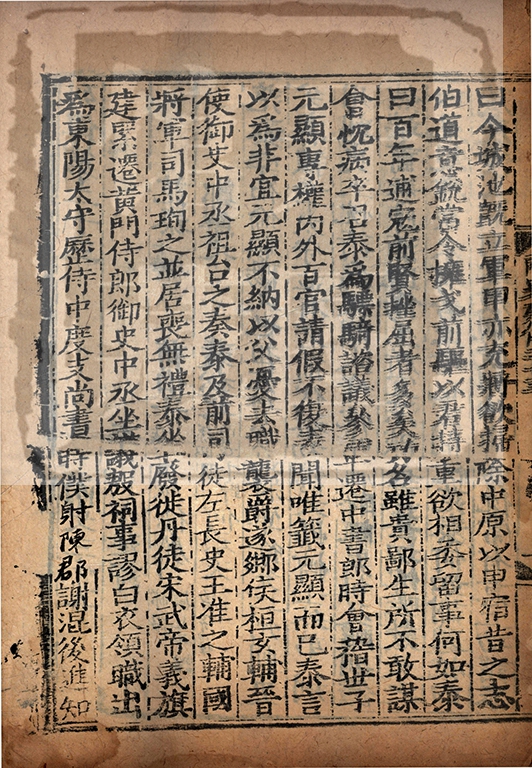 曰今城池既立軍甲亦充將欲掃除中原以申宿昔之志
伯道意銳當令擁戈前驅以君持重欲相委留事何如泰
曰百年逋寇前賢挫屈者多矣功名雖貴鄙生所不敢謀
會忱病卒召泰爲驃騎諮議參軍遷中書郎時會稽世子
元顯專權內外百官請假不復表聞唯籤元顯而已泰言
以爲非宜元顯不納以父憂去職襲爵遂鄉侯桓玄輔晉
使御史中丞祖台之奏泰及前司徒左長史王准之輔國
將軍司馬珣之並居喪無禮泰坐廢徙丹徒宋武帝義旗
建累遷黃門侍郎御史中丞坐議殷祠事謬白衣領職出
爲東陽太守歷侍中度支尚書時僕射陳郡謝混後進知